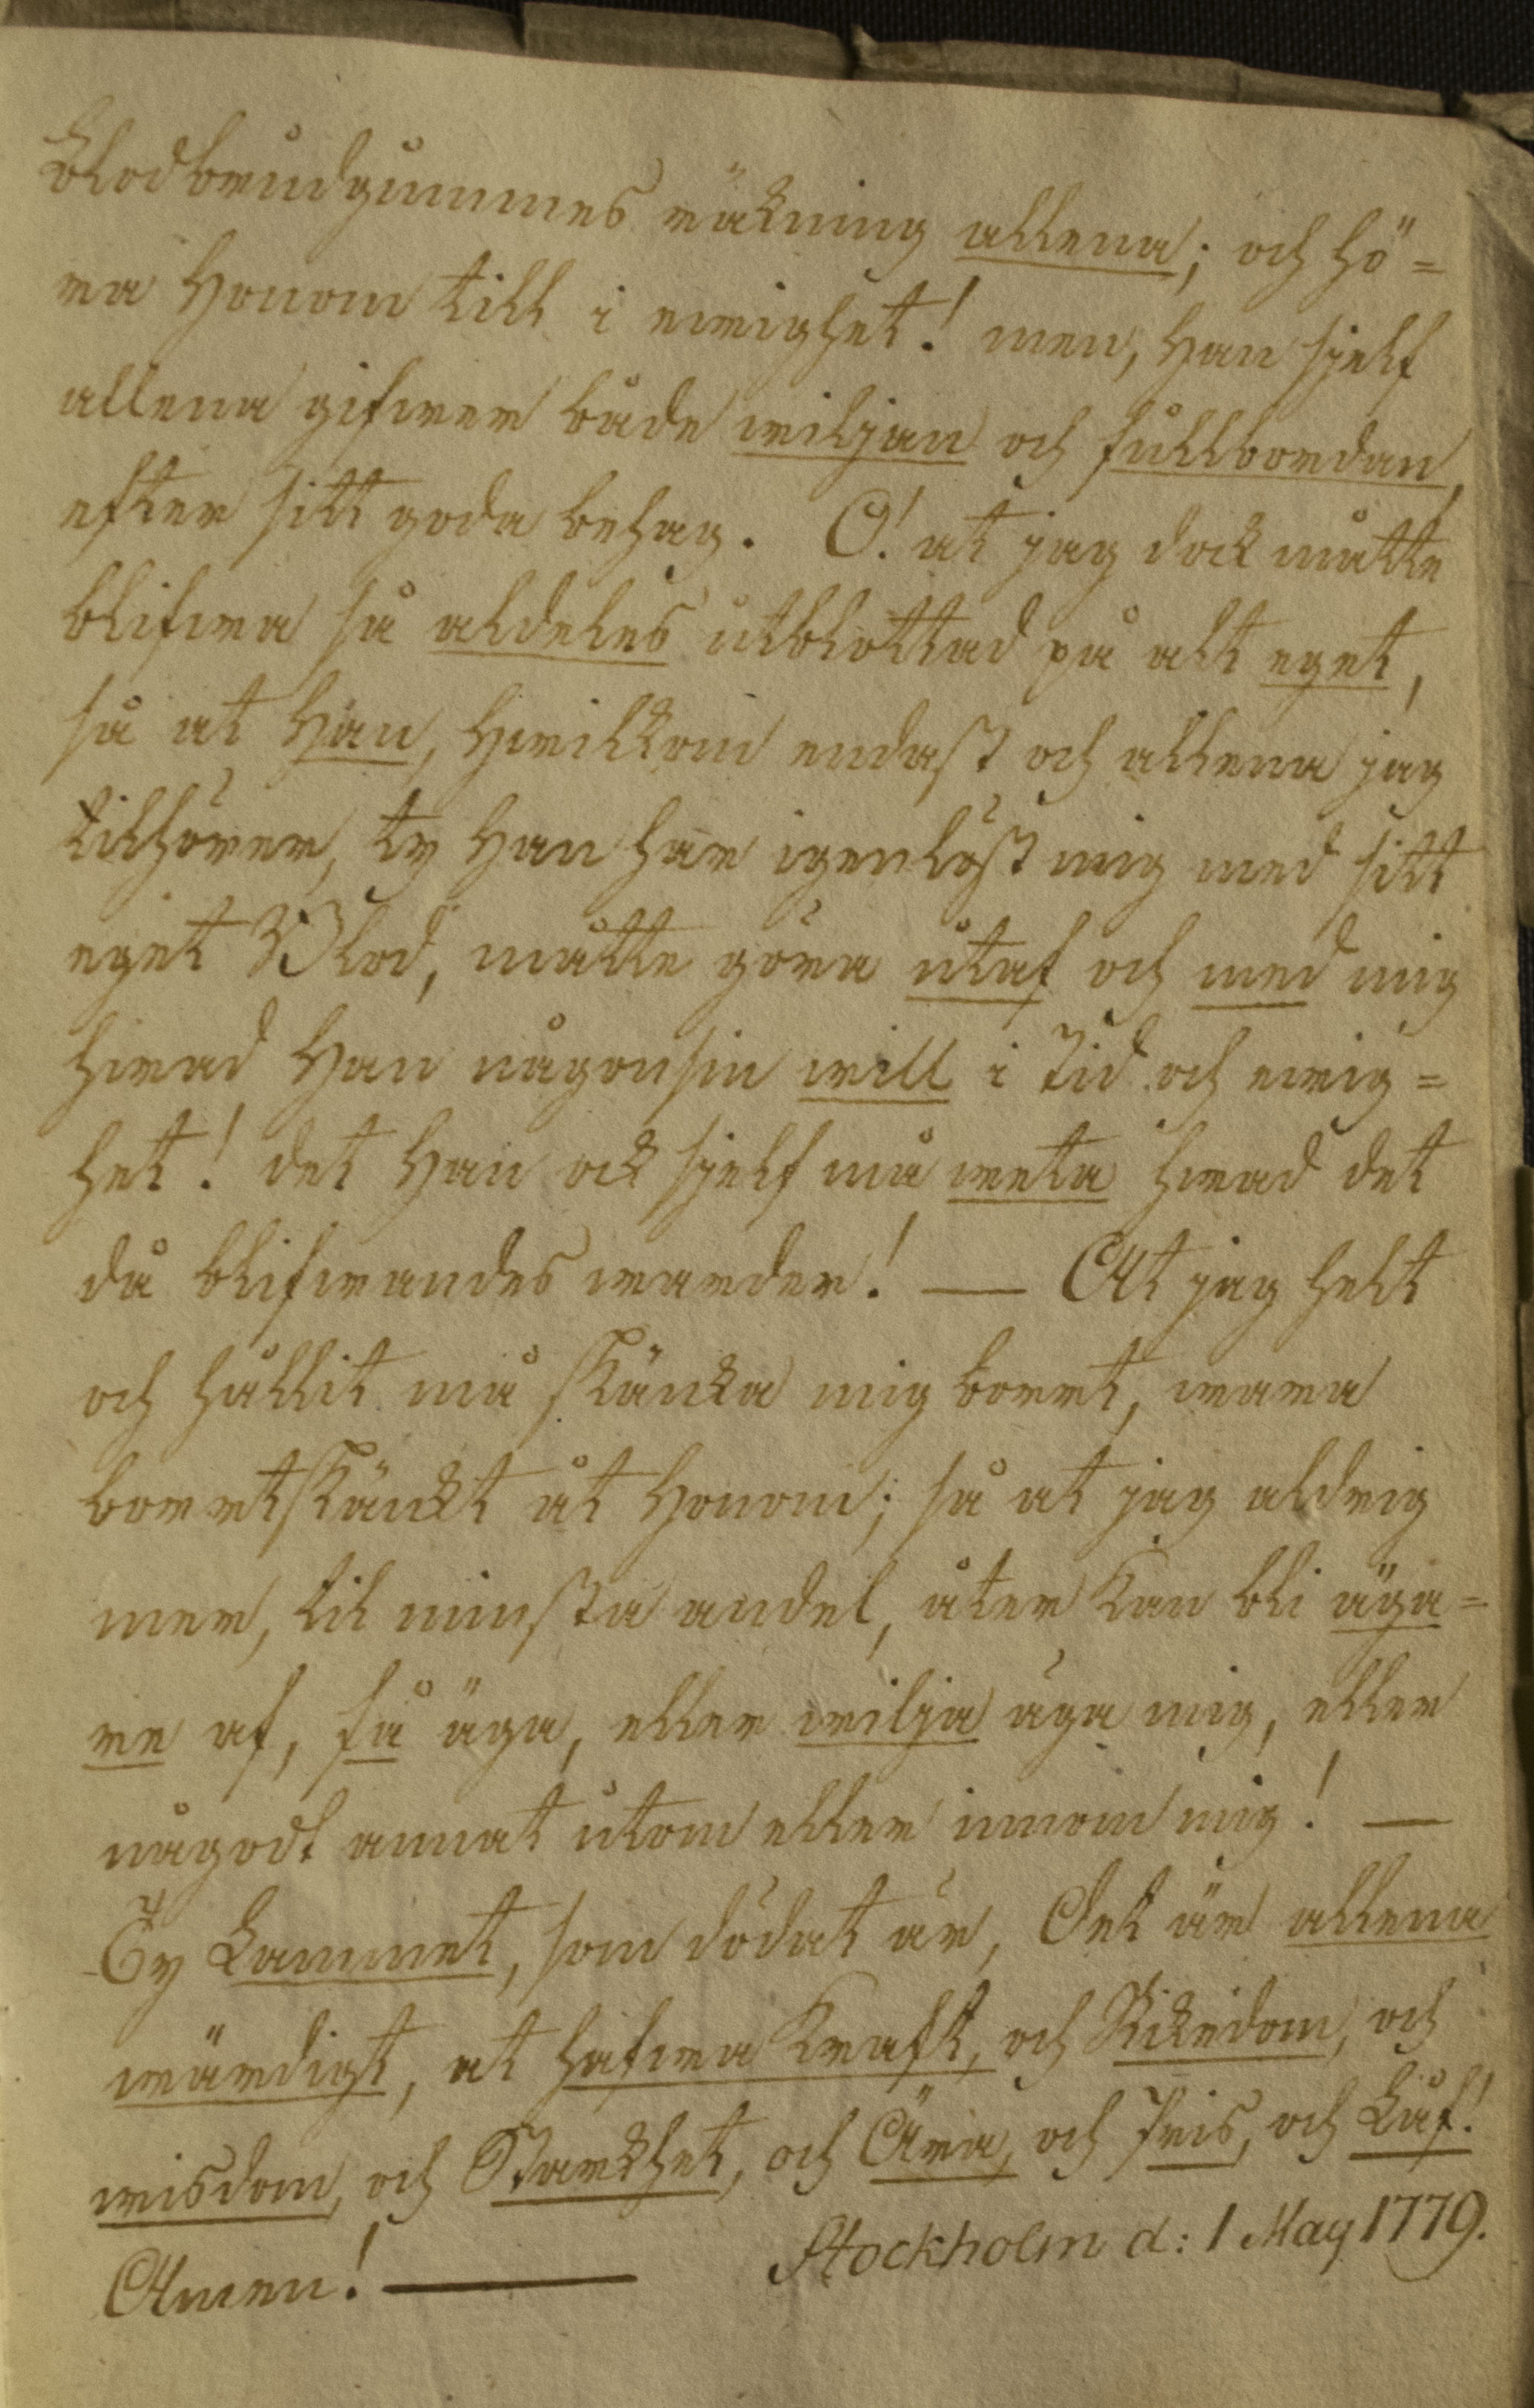 Blodbrudgummes räkning allena; och hö=
ra Honom till i ewighet! men, Han sjelf
allena gifwer både wiljan och fullbordan,
efter sitt goda behag. O! at jag dock måtte
blifwa så aldeles utblottad på alt eget,
så at Han, Hwilkom endast och allena jag
tilhörer, ty Han har igenlöst mig med sitt
eget Blod, måtte göra utaf och med mig
hwad Han någonsin will i Tid och ewig=
het! det Han ock sjelf må weta hwad det
då blifwandes warder! — At jag helt
och hållit må skänka mig bort, wara
bortskänkt åt Honom; så at jag aldrig
mer, til minsta andel, åter kan bli äga=
re af, få äga, eller wilja äga mig, eller
någodt annat utom eller innom mig! —
Ty Lammet, som dödat är, Det är allena
wärdigt, at hafwa Kraft, och Rikedom, och
wisdom, och Starkhet, och Ära, och Pris, och Låf!
Amen! — Stockholm d: 1 May 1779.